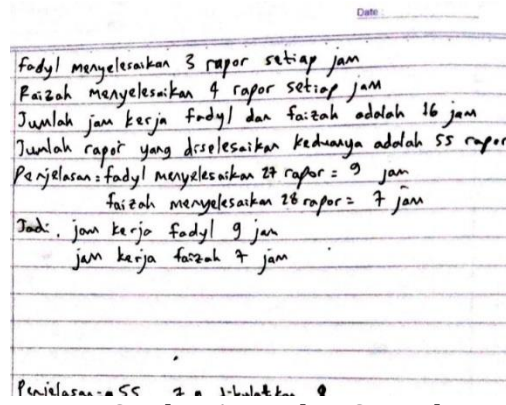 Date
fadyl menyelesaikan 3 rapor setiap jam
Faizah menyelesaikan 4 rapor setiap jam
Jumlah jam kerja fadyl dan faizah adalah 16 jam
Jumlah rapor yang diselesaikan keduanya adalah 55 rapor
Penjelasan = fadyl menyelesaikan 27 rapor = 9 jam
faizah menyelesaikan 28 rapor = 7 jam
Jadi. jam kerja fadyl 9 jam
jam kerja faizah 7 jam
Penjelasan = 55